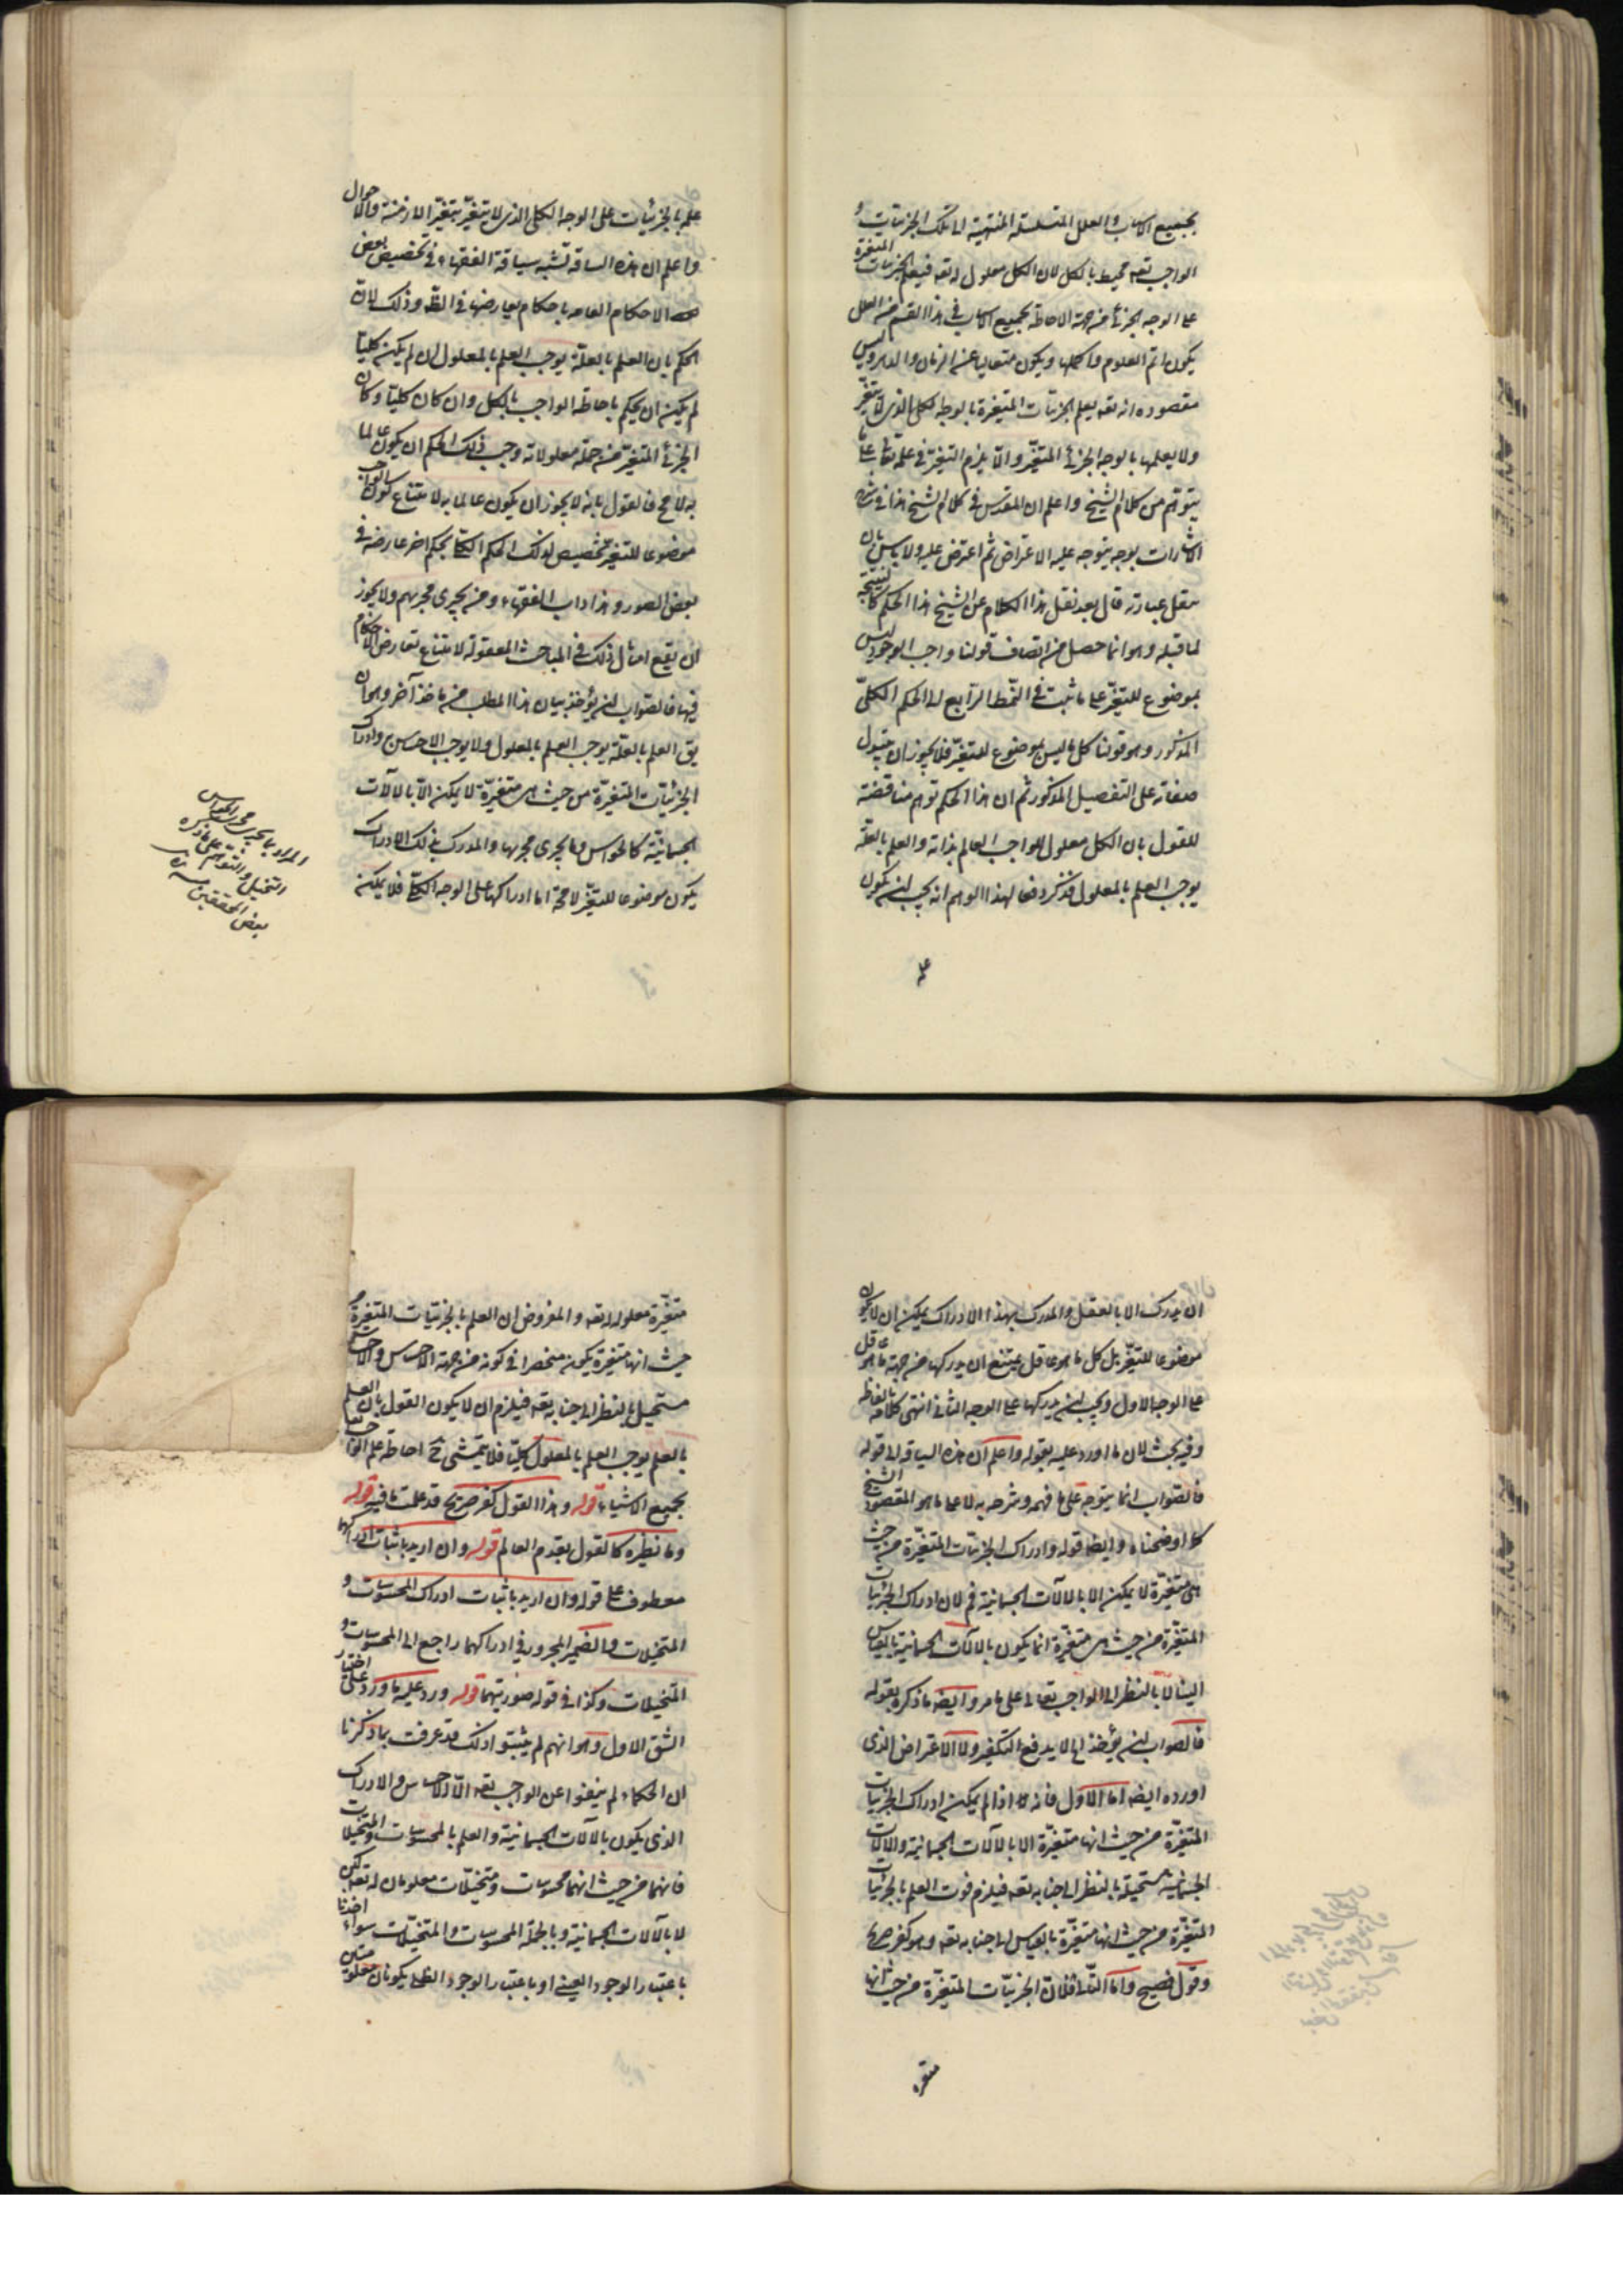 بجميع الاسباب و العلل المتسلسلة المنتهية الى تلك الجزئيات و
الواجب تعه محيط بالكل لان الكل معلول له تعه فيعلم الجزئيات المتغيرة
على الوجه الجزئى من جهة الاحاطة بجميع الاسباب فى هذا القسم من العلل
يكون اتم العلوم واكملها ويكون متعاليا عن الزمان والدهر وليس
مقصوده انه تعه يعلم الجزئيات المتغيرة بالوجه الكلى الذى لا يتغير
ولا يعلمها بالوجه الجزئى المتغير والا يلزم التغير فى علمه تعالى على ما
يتوهم من كلام الشيخ واعلم ان المقدس فى كلام الشيخ هذا فى شرح
الاشارات بوجه يتوجه عليه الاعتراض ثم اعترض عليه ولا باس بان
ننقل عبارته قال بعد نقل هذا الكلام عن الشيخ هذا الحكم كالنتيجة
لما قبله وهو انما حصل من انضاف قولنا واجب الوجود ليس
بموضوع للتغير على ما ثبت فى النمط الرابع الى الحكم الكلىّ
المذكور وهو قولنا كل ما ليس بموضوع للتغير فلا يجوز ان يتبدل
صفاته على التفصيل المذكور ثم ان هذا الحكم توهم مناقضته
للقول بان الكل معلول للواجب العالم بذاته والعلم بالعلة
يوجب العلم بالمعلول فذكر دفعا لهذا الوهم انه يجب ان يكون
علمه
علمه بالجزئيات على الوجه الكلى الذى لا يتغير بتغير الازمنة والاحوال
واعلم ان هذه السياقة تشبه سياقة الفقهاء فى تخصيص بعض
الاحكام العامه باحكام يعارضها فى الظه وذلك لان
الحكم بان العلم بالعلة يوجب العلم بالمعلول ان لم يكن كليا
لم يمكن ان يحكم باحاطة الواجب بالكل وان كان كليا وكان
الجزئى المتغير من جملة معلولاته وجب ذلك الحكم ان يكون عالما
به لا مح فالقول بانه لا يجوز ان يكون عالما به لامتناع كون الواجب
موضوعا للتغير تخصيص لذلك الحكم الكلى بحكم اخر عارضه فى
بعض الصور وهذا داب الفقهاء ومن يجرى مجريهم ولا يجوز
ان يقع امثال ذلك فى المباحث المعقولة لامتناع تعارض الاحكام
فيها فالصواب ان يؤخذ بيان هذا المطلب من ماخذ آخر وهو ان
يق العلم بالعلة يوجب العلم بالمعلول ولا يوجب الاحساس وادراك
الجزئيات المتغيرة من حيث هى متغيرة لا يمكن الا بالآلات
الجسمانية كالحواس وما يجرى مجريها والمدرك بذلك الادراك
يكون موضوعا للتغير لا محة اما ادراكها على الوجه الكلى فلا يمكن
المراد بما يجرى مجرى الحواس
التخيل والتوهم على ما ذكره
بعض المحققين
ان يدرك الا بالعقل والمدرك بهذا الادراك يمكن ان لا يكون
موضوعا للتغير بل كل ما هو عاقل يمتنع ان يدركها من جهة ما هو عاقل
على الوجه الاول ويجب ان يدركها على الوجه الثانى انتهى كلامه بالفاظه
وفيه بحث لان ما اورد عليه بقوله واعلم ان هذه السياقة الى قوله
فالصواب انما يتوجه على ما فهمه وشرحه به لا على ما هو المقصود الشيخ
كما اوضحناه وايضا قوله وادراك الجزئيات المتغيرة من حيث
هى متغيرة لا يمكن الا بالآلات الجسمانية فم لان ادراك الجزئيات
المتغيرة من حيث هى متغيرة انما يكون بالآلات الجسمانية بالقياس
الينا لا بالنظر الى الواجب تعالى على ما مر وايضه ما ذكره بقوله
فالصواب ان يؤخذ الخ لا يدفع التكفير ولا الاعتراض الذى
اورده ايضه اما الاول فانه اذا لم يمكن ادراك الجزئيات
المتغيرة من حيث انها متغيرة الا بالآلات الجسمانية والآلات
الجسمانية مستحيلة بالنظر الى جنابه تعه فيلزم فوت العلم بالجزئيات
المتغيرة من حيث انها متغيرة بالقياس الى جنابه تعه وهو كفر صريح
وقول فضيح واما الثانى فلان الجزئيات المتغيرة من حيث انها
متغيرة
متغيرة معلولة له تعه والمفروض ان العلم بالجزئيات المتغيرة من
حيث انها متغيرة يكون منحصرا فى كونه من جهة الاحساس والاحساس
مستحيل بالنظر الى جنابه تعه فيلزم ان لا يكون القول بان العلم
بالعلم يوجب العلم بالمعلول كليا فلا يتمشى ح احاطة علم الواجب تعا
بجميع الاشياء قوله وهذا القول كفر صريح قد علمت ما فيه قوله
وما نظيره كالقول بقدم العالم قوله وان اريد باثبات ادراكها
معطوف على قوله وان اريد باثبات ادراك المحسوسات و
المتخيلات والضمير المجرور فى ادراكهما راجع الى المحسوسات و
المتخيلات وكذا فى قوله صورتيهما قوله ورد عليه ما ورد على اختيار
الشق الاول وهو انهم لم يثبتوا ذلك قد عرفت بما ذكرنا
ان الحكماء لم ينفوا عن الواجب تعه الا الاحساس والادراك
الذى يكون بالآلات الجسمانية والعلم بالمحسوسات والمتخيلات
فانهما من حيث انهما محسوسات ومتخيلات معلومان له تعه لكن
لا بالآلات الجسمانية وبالجملة المحسوسات والمتخيلات سواء اخذنا
باعتبار الوجود العينى او باعتبار الوجود الظلى يكونان معلومتين